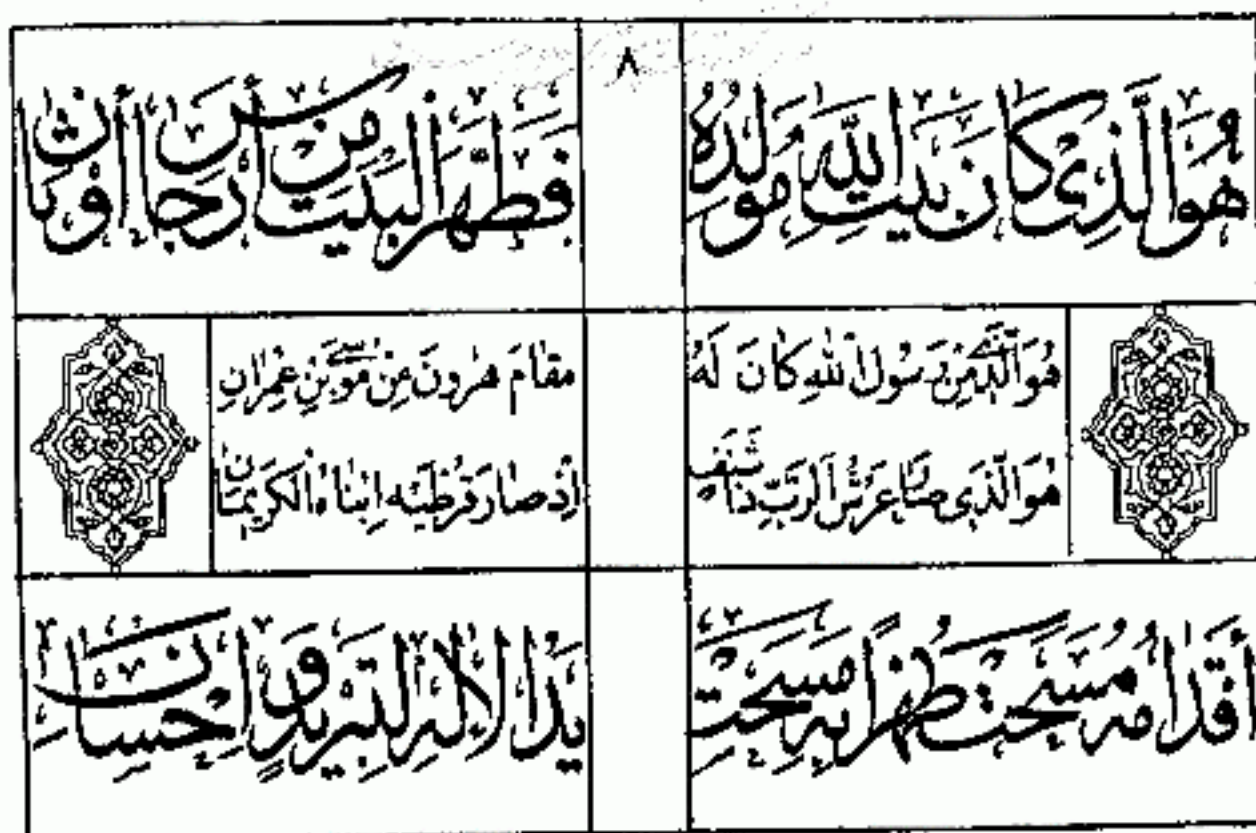 ٨
هُوَ الَّذِی كَانَ بَیْتُ اللهِ مَوْلِدُهُ
فَطَهَّرَ الْبَیْتَ مِنْ أَرْجَاسِ أَوْثَانٍ
هُوَ الَّذِی مِنْ رَسُولِ اللهِ كَانَ لَهُ
مَقَامَ هٰرُونَ مِنْ مُوسَی بْنِ عِمْرَانِ
هُوَ الَّذِی صَارَ عَرْشُ الرَّبِّ ذَا شَنَفٍ
اِذْ صَارَ قُرْطَیْهِ ابْنَاهُ الْكَرِیمَانِ
أَقْدَامُهُ مَسَحَتْ ظَهْرًا بِهِ مَسَحَتْ
یَدُ الْاِلٰهِ لِتَبْرِیدٍ وَ اِحْسَانٍ